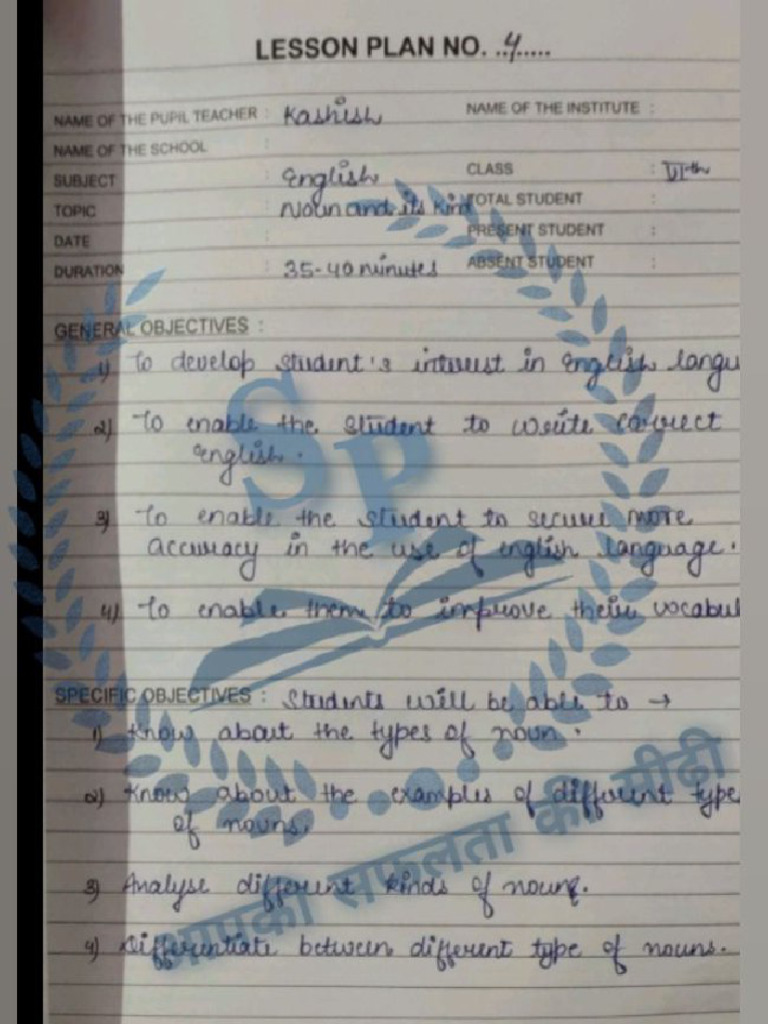 LESSON PLAN NO. ..4.....
NAME OF THE PUPIL TEACHER : Kashish NAME OF THE INSTITUTE :
NAME OF THE SCHOOL :
SUBJECT : English CLASS : VIth
TOPIC : Noun and its kind TOTAL STUDENT :
DATE : PRESENT STUDENT :
DURATION : 35-40 minutes ABSENT STUDENT :
GENERAL OBJECTIVES :
1) To develop student's interest in english langu
2) To enable the student to write correct
english.
3) To enable the student to secure more
accuracy in the use of english language.
4) To enable them to improve their vocabul
SP
SPECIFIC OBJECTIVES : Students will be able to →
1) Know about the types of noun.
2) Know about the examples of different type
of nouns.
3) Analyse different kinds of nouns.
4) Differentiate between different type of nouns.
आपकी सफलता की सीढ़ी